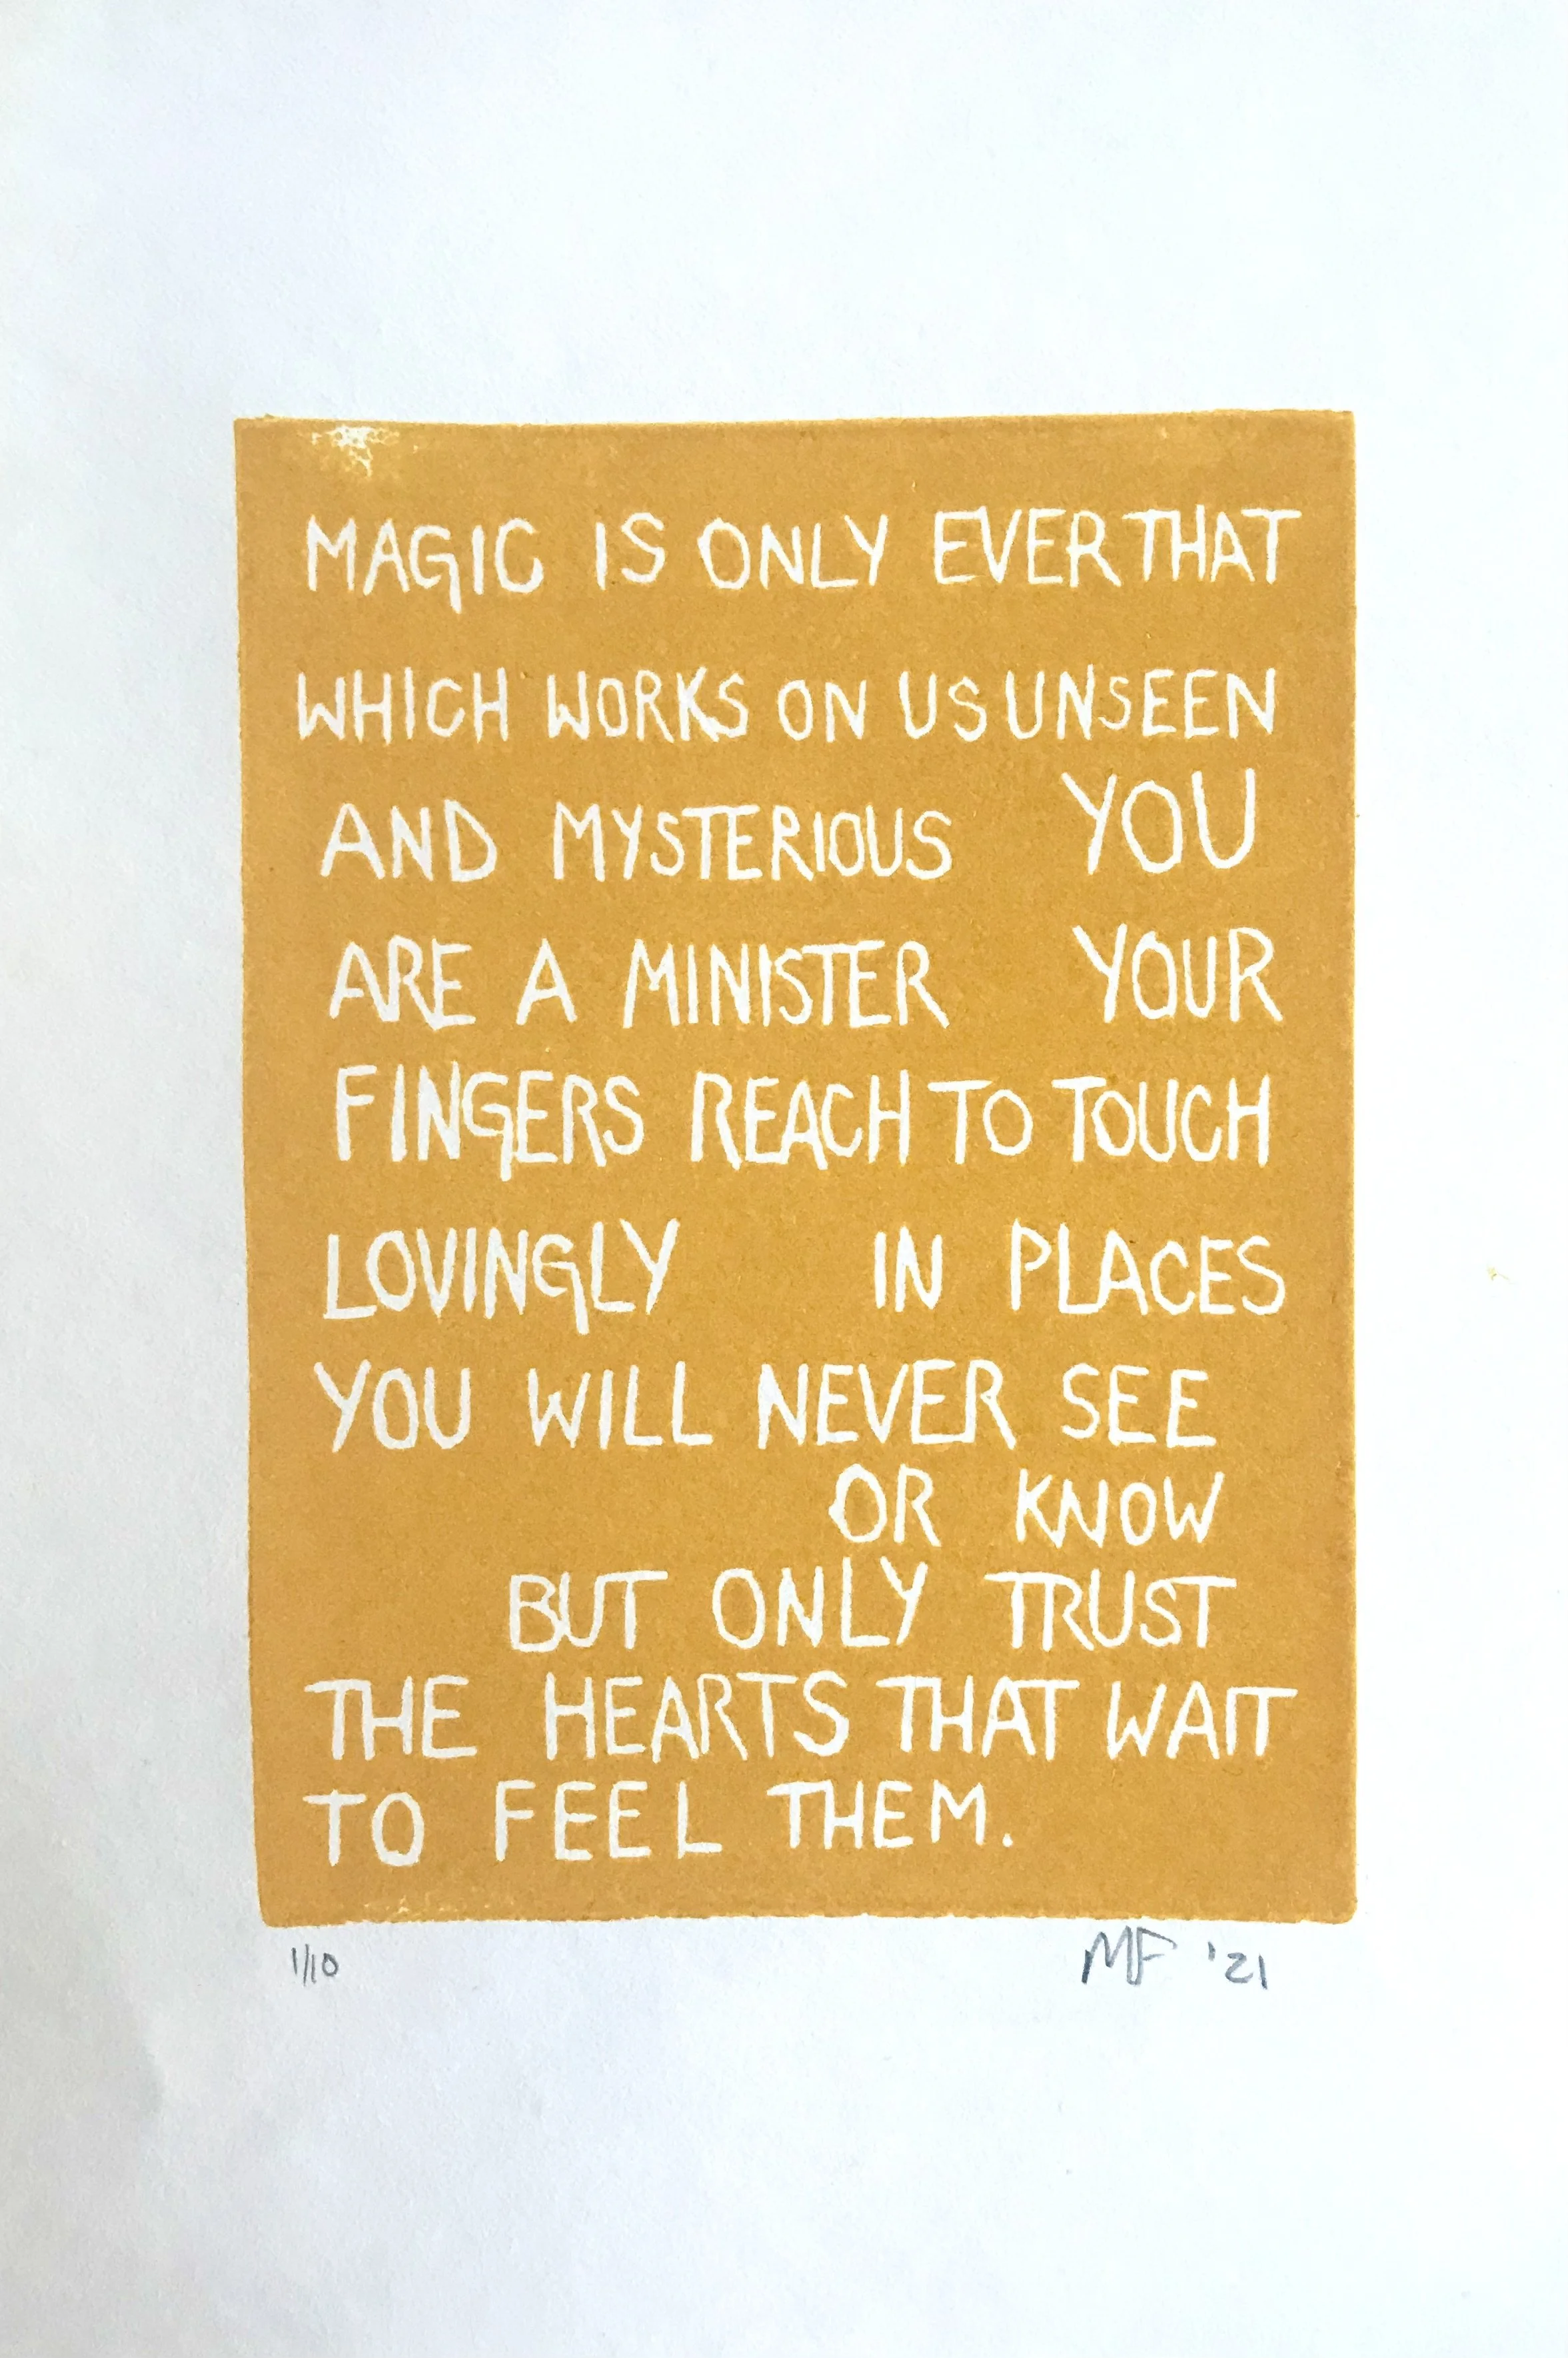 MAGIC IS ONLY EVER THAT
WHICH WORKS ON US UNSEEN
AND MYSTERIOUS YOU
ARE A MINISTER YOUR
FINGERS REACH TO TOUCH
LOVINGLY IN PLACES
YOU WILL NEVER SEE
OR KNOW
BUT ONLY TRUST
THE HEARTS THAT WAIT
TO FEEL THEM.
1/10 MF '21